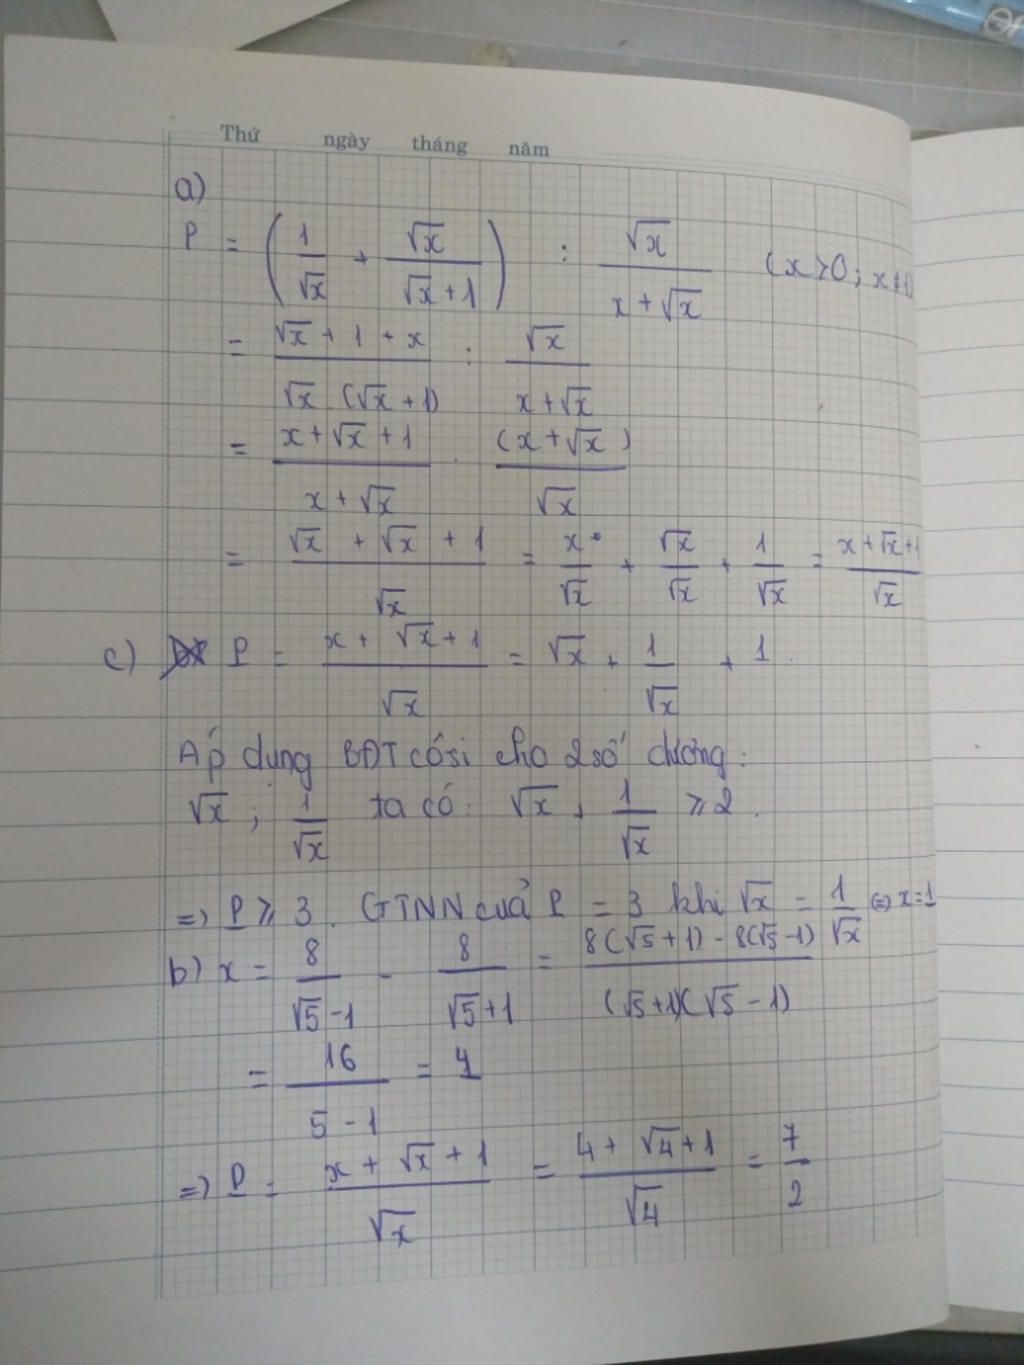 Thứ ngày tháng năm
a)
P = (1/√x + √x/(√x+1)) : √x/(x+√x) (x>0; x≠1)
= (√x+1+x)/(√x.(√x+1)) : √x/(x+√x)
= (x+√x+1)/(x+√x) . (x+√x)/√x
= (√x+√x+1)/√x = x/√x + √x/√x + 1/√x = (x+√x+1)/√x
c) P = (x+√x+1)/√x = √x + 1/√x + 1.
Áp dụng BĐT côsi cho 2 số dương:
√x ; 1/√x ta có: √x + 1/√x ≥ 2.
=> P ≥ 3. GTNN cuả P = 3 khi √x = 1/√x <=> x=1
b) x = 8/(√5-1) - 8/(√5+1) = (8(√5+1)-8(√5-1))/((√5+1)(√5-1))
= 16/(5-1) = 4
=> P = (x+√x+1)/√x = (4+√4+1)/√4 = 7/2